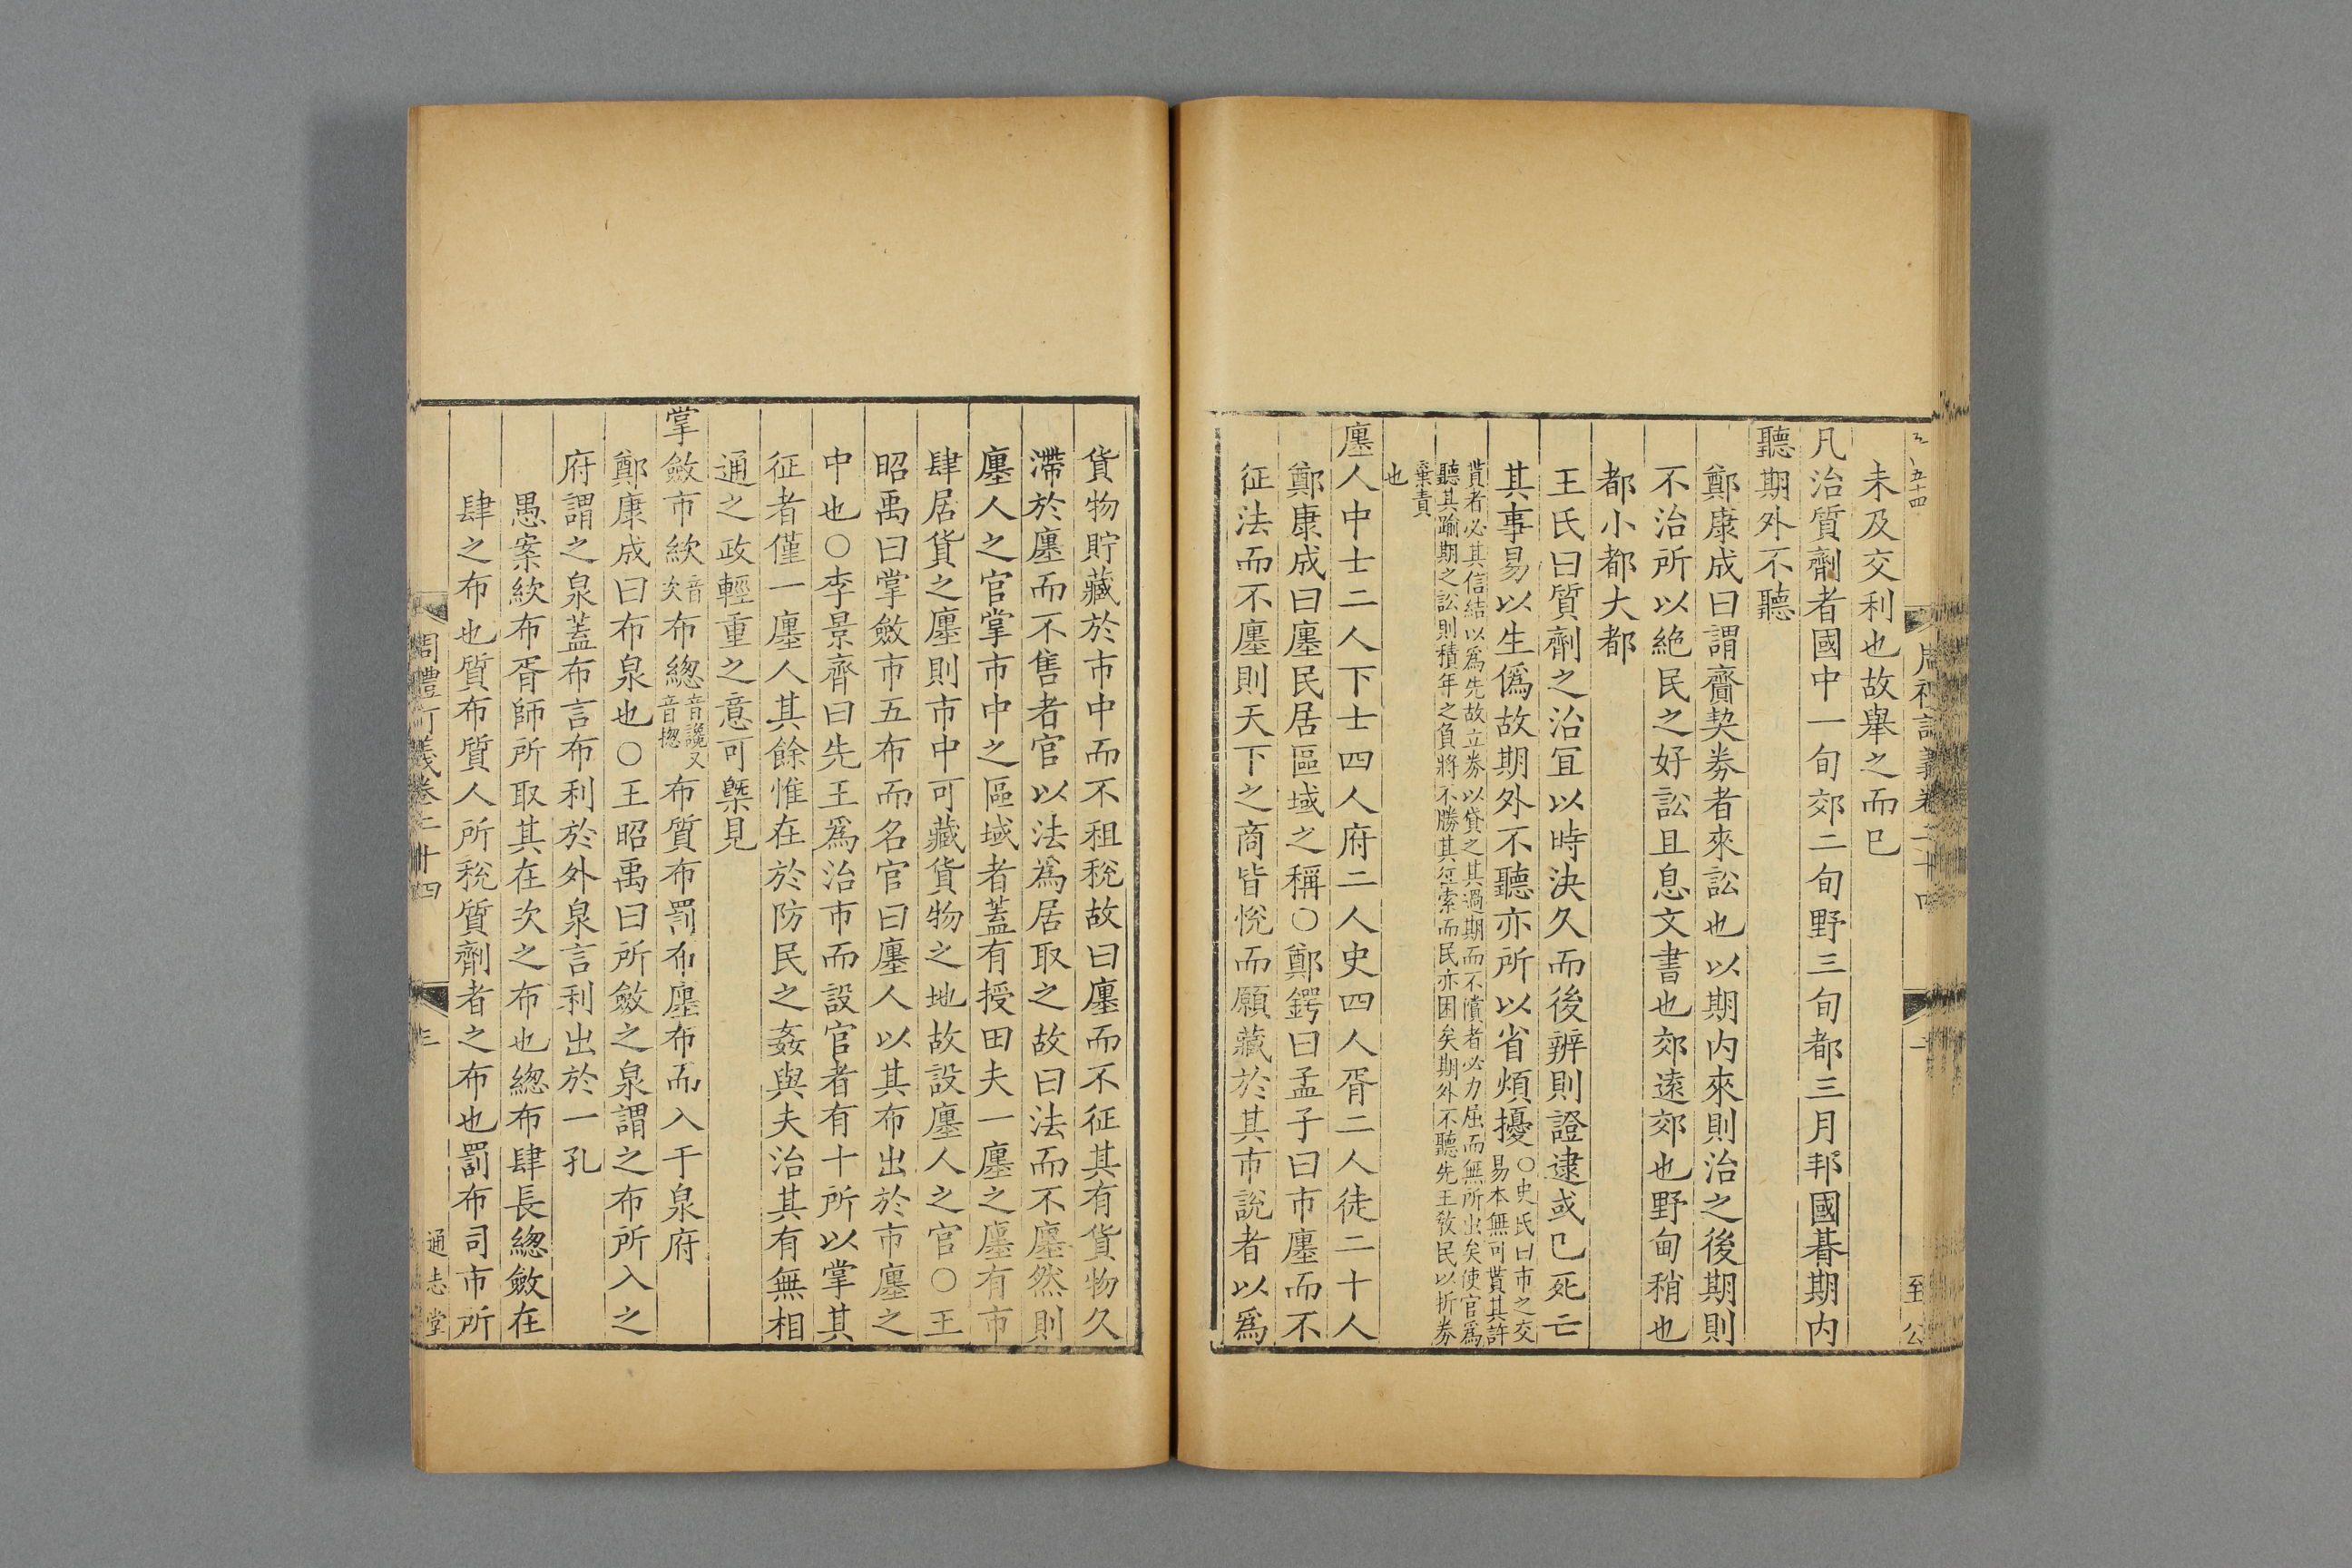 未及交利也故舉之而已
凡治質劑者國中一旬郊二旬野三旬都三月邦國朞期內
聽期外不聽
鄭康成曰謂齎契劵者來訟也以期內來則治之後期則
不治所以絕民之好訟且息文書也郊遠郊也野甸稍也
都小都大都
王氏曰質劑之治冝以時決久而後辨則證逮或已死亡
其事易以生僞故期外不聽亦所以省煩擾○史氏曰市之交易本無可貰其許
貰者必其信結以爲先故立劵以貸之其過期而不償者必力屈而無所出矣使官爲
聽其踰期之訟則積年之負將不勝其徃索而民亦困矣期外不聽先王敎民以折劵
棄責
也
廛人中士二人下士四人府二人史四人胥二人徒二十人
鄭康成曰廛民居區域之稱○鄭鍔曰孟子曰市廛而不
征法而不廛則天下之商皆悅而願藏於其市說者以爲
周禮訂義卷二十四
通志堂
貨物貯藏於市中而不租稅故曰廛而不征其有貨物久
滯於廛而不售者官以法爲居取之故曰法而不廛然則
廛人之官掌市中之區域者蓋有授田夫一廛之廛有市
肆居貨之廛則市中可藏貨物之地故設廛人之官○王
昭禹曰掌斂市五布而名官曰廛人以其布出於市廛之
中也○李景齊曰先王爲治市而設官者有十所以掌其
征者僅一廛人其餘惟在於防民之姦與夫治其有無相
通之政輕重之意可槩見
掌斂市絘音次布緫音讒又音揔布質布罰布廛布而入于泉府
鄭康成曰布泉也○王昭禹曰所斂之泉謂之布所入之
府謂之泉蓋布言布利於外泉言利出於一孔
愚案絘布胥師所取其在次之布也緫布肆長緫斂在
肆之布也質布質人所稅質劑者之布也罰布司市所